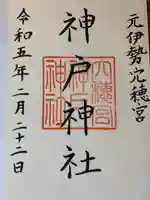 元伊勢宂穂宮
神戸神社
令和五年二月二十二日
六穂宮
神戸
神社